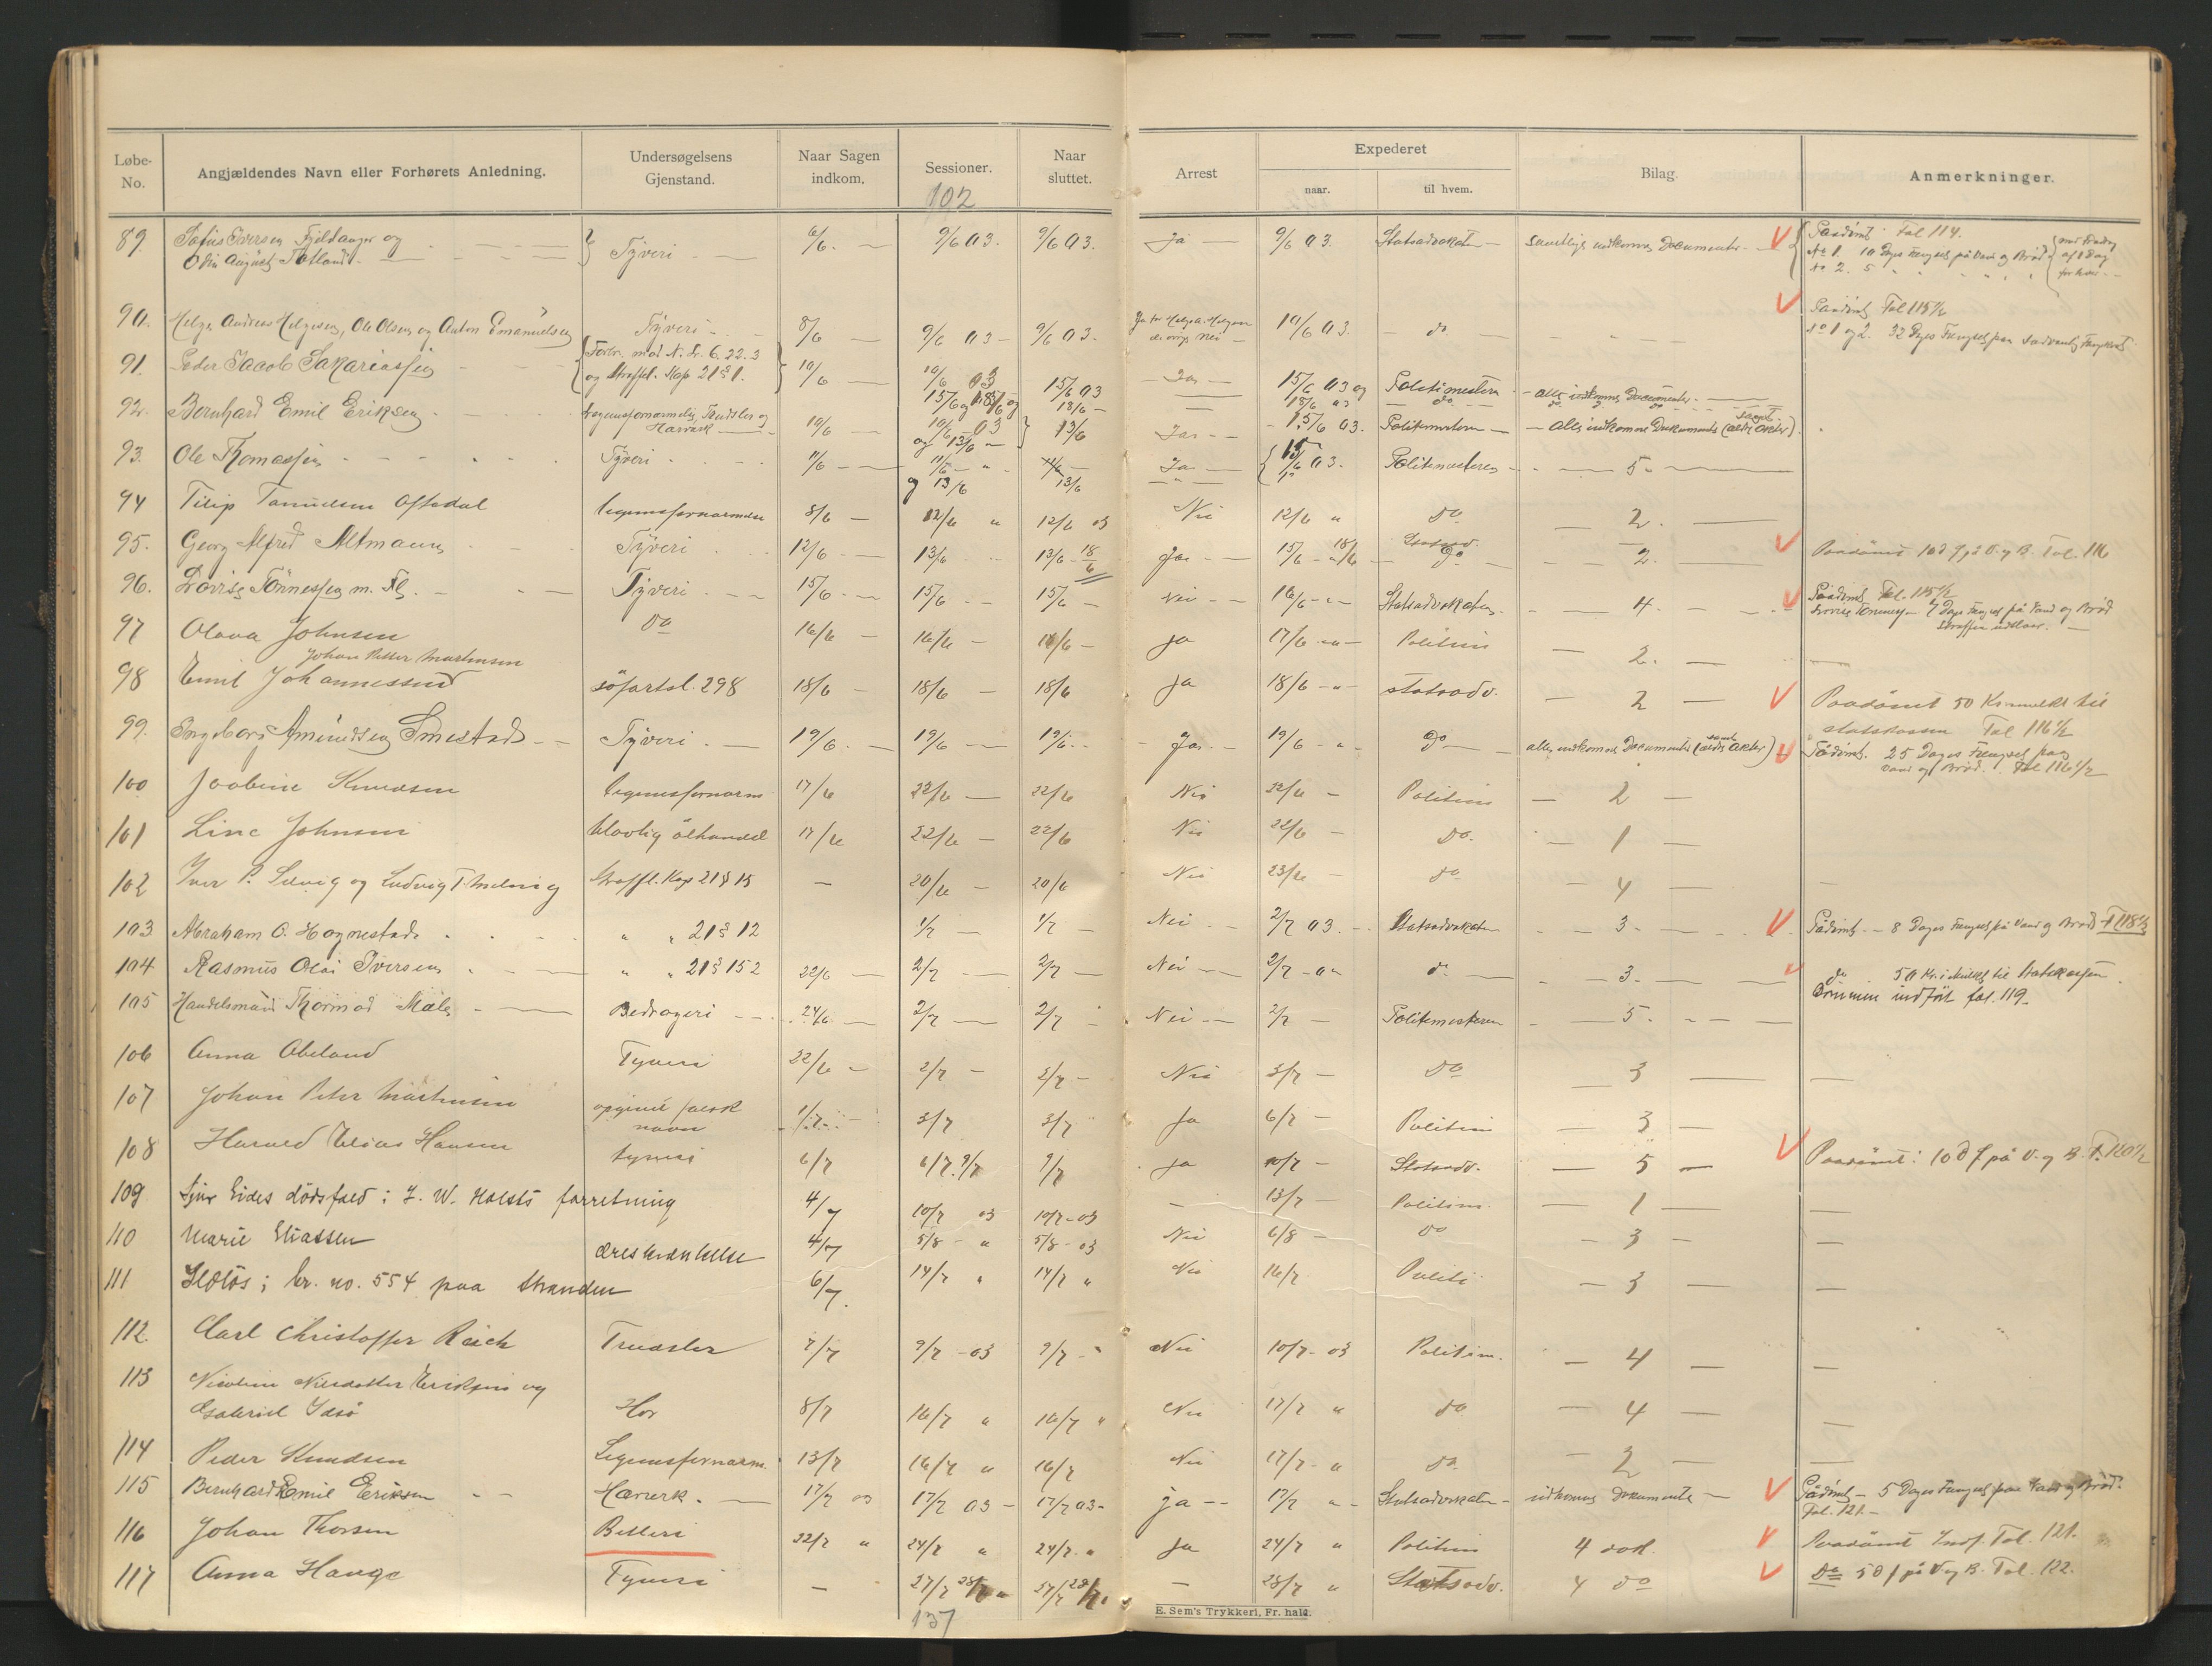 Løbe-No. Angjældendes Navn eller Forhørets Anledning. Undersøgelsens Gjenstand. Naar Sagen indkom. Sessioner. Naar sluttet. Arrest Expederet naar. til hvem. Bilag. Anmerkninger.
102
89. Iversen Fjeldanger og Tyveri 6/6. — 9/6 03. 9/6 03. Ja — 9/6 03. Statsadvokaten — samtlige indkomne Documenter. — Paadömt Fol 114.
Odin August No 1. 10 Dages Fengsel på Vand og Bröd
No 2. 5 " " " " " for hver
90. Helge Andreas Helgesen, Ole Olsen og Anton Emanuelsen Tyveri 8/6 — 9/6 03 — 9/6 03. Ja for Helge A. Helgesen de övrige Nei — 10/6 03. — do — Paadömt Fol 115 1/2
No 1 og 2. 32 Dages Fengsel paa sædvanlig Fangekost
91. Peder Jacob Sakariassen Forbr. mod N. L. 6. 22. 3 og Straffel. Kap 21 § 1. 10/6 — 10/6 03 15/6 og 18/6 15/6 03 18/6 — Ja — 15/6 03 og 18/6 03 Politimesteren do — alle indkomne Documenter.
92. Bernhard Emil Eriksen Legemsfornærmelse, Trudsler og Hærverk 10/6 — 10/6 03 og 13/6 — 13/6 Ja — 15/6 03. Politimesteren — — alle indkomne Dokumenter (ældre Akter).
93. Ole Thomassen Tyveri 11/6 — 11/6 — " og 13/6 13/6 Ja — 15/6 03. Politimesteren — 5 —
94 Filip Tønnesen Oftedal legemsfornærmelse 8/6 — 12/6 " 12/6 03 Nei 12/6 " do — 2. —
95. Georg Alfred Altmann Tyveri 12/6 — 13/6 13/6 - 18/6 Ja — 15/6 - 18/6 — Statsadv. do — 2. Paadömt 10 d f på V. og B. Fol. 116
96. Lovise Tönnessen m. Fl. Tyveri 15/6 — 15/6 — 15/6 — Nei — 16/6 - " - Statsadvokaten. — 4. — Paadömt Fol. 115 1/2
Lovise Tönnessen — 4 Dages Fengsel på Vand og Bröd
97 Olava Johnsen do 16/6 — 16/6 — 16/6 — ja 17/6 — " — Politim — 2. —
Johan Petter Martinsen
98 Emil Johannessen söfartsl. 298 18/6 — 18/6 — 18/6 ja 18/6 — " — statsadv. — 2 — Paadömt 50 Kr mulkt til
statskassen Fol 116 1/2
99. Ingeborg Amundsen Smestad — Tyveri — 19/6 — 19/6 — 19/6 — Ja — 19/6 — " — do — alle indkomne Documenter (samt ældre Akter) Pådömt. 25 Dages Fengsel paa
Vand og Bröd. Fol 116 1/2
100 Jacobine Knudsen legemsfornærm 17/6 22/6 — 22/6 Nei 22/6 — Politim — 2 —
101 Line Johnsen Ulovlig ölhandel 17/6 22/6 — 22/6 Nei 22/6 — do. — 1 —
102 Iver P. Selvig og Ludvig T. Melvig Straffl. Kap 21 § 15 — 20/6 — 20/6 Nei 23/6 — do — 4 — —
103 Abraham O. Hognestad " " 21 § 12 1/7 — 1/7 — Nei 2/7 03. — Statsadvokaten — 3 — Pådömt — 8 Dages Fengsel på Vand og Bröd F 118 1/2
104 Rasmus Olai Iversen " " 21 § 15 2 22/6 — 2/7 — 2/7 — Nei — 2/7 — 03 do — 3. — do 50 Kr. i Mulkt til Statskassen.
Dommen indfört fol. 119.
105 Handelsmand Thormod Mæle — Bedrageri — 24/6 — 2/7 — 2/7 — Nei — 2/7 — Politimesteren — 5. —
106 Anna Obeland Tyveri 22/6 — 2/7 — 2/7 — Nei 3/7 — do — 3 — —
107 Johan Peter Martinsen opgivet falsk navn 1/7 — 3/7 3/7 Ja 6/7 — Politim — 3 —
108 Harald Elias Hansen tyveri 6/7 6/7. 9/7 9/7 ja 10/7 — Statsadv. — 5 — Paadömt: 10 d f på V. og B. F. 120 1/2
109 Sjur Eides dödsfald i J. W. Holsts forretning 4/7 10/7 03 10/7 - 03 — 13/7 — Politim. — 1 — —
110 Marie Eliassen æreskrænkelse 4/7 5/8 — " 5/8 - 03 Nei 6/8 — do — 3 — —
111 Ildlös i br. no. 554 paa Stranden 6/7. 14/7 " 14/7 " Nei 16/7 Politi — 3 — —
112. Carl Christoffer Reich Trudsler 7/7 9/7 - 03 9/7 - " Nei 10/7 - 03 Politim. — 4 — —
113 Nicoline Nilsdatter Eriksen og
Gabriel Idsö Hor 8/7 16/7 " 16/7 " Nei 17/7 " do — 4 — —
114 Peder Knudsen Legemsfornærm. 13/7 16/7 " 16/7 Nei 17/7 - " do. — 2 —
115 Bernhard Emil Eriksen — Hærverk. — 17/7 03 17/7 03 — 17/7 03 - ja — 17/7 " - Statsadvokaten — indkomne Dokumenter — Pådömt — 5 Dages Fengsel paa Vand og Bröd.
Fol. 121. —
116 Johan Thorsen Betleri 22/7 " 24/7 " 24/7 " Ja 24/7 " Politim 4 dok. Paadömt Indf. Fol. 121.
117 Anna Hauge Tyveri — 27/7 28/7 " 27/7 28/7 " — 28/7 " Statsadv. 4 do Do 5 d f på V og B. Fol. 122.
137
E. Sem's Trykkeri, Fr. hald.